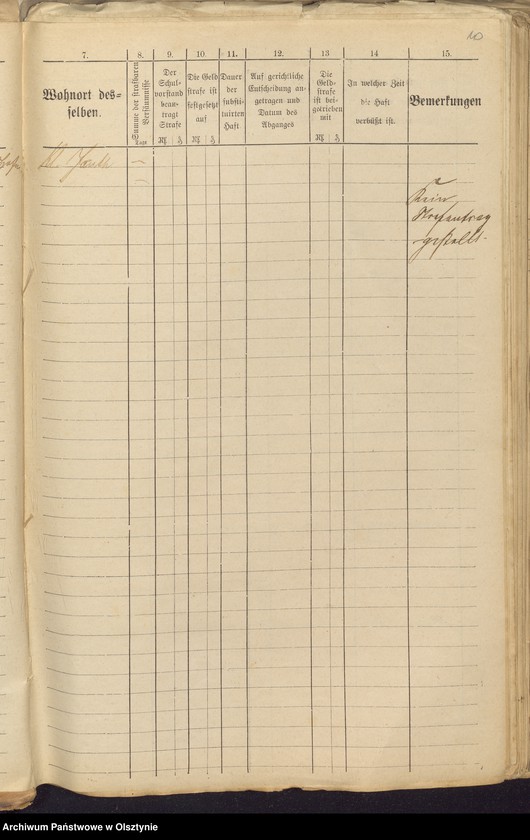 10
7.
8.
9.
10
11.
12.
13
14
15.
Wohnort des=
selben.
Summe der strafbaren
Versäumnisse
Tage
Der
Schul-
vorstand
bean-
tragt
Strafe
M. ₰
Die Geld
strafe ist
festgesetzt
auf
M. ₰
Dauer
der
substi-
tuirten
Haft
Auf gerichtliche
Entscheidung an-
getragen und
Datum des
Abganges
Die
Geld-
strafe
ist bei-
getrieben
mit
M. ₰
In welcher Zeit
die Haft
verbüßt ist.
Bemerkungen
Kl.
—
Kein
Strafantrag
gestellt.
Archiwum Państwowe w Olsztynie